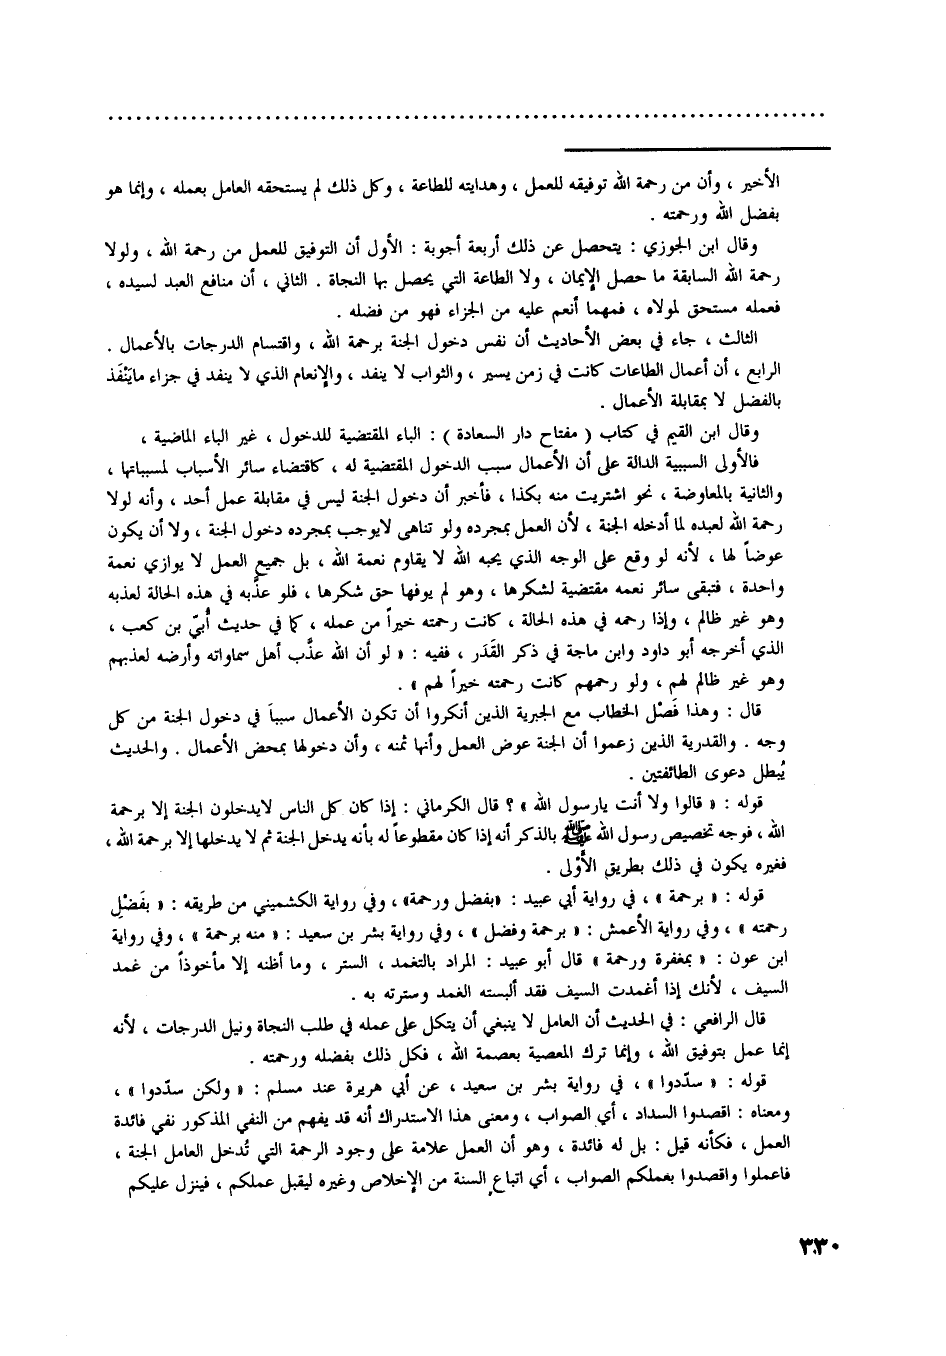 الأخير ، وأن من رحمة الله توفيقه للعمل ، وهدايته للطاعة ، وكل ذلك لم يستحقه العامل بعمله ، وإنما هو
بفضل الله ورحمته .
وقال ابن الجوزي : يتحصل عن ذلك أربعة أجوبة : الأول أن التوفيق للعمل من رحمة الله ، ولولا
رحمة الله السابقة ما حصل الإيمان ، ولا الطاعة التي يحصل بها النجاة . الثاني ، أن منافع العبد لسيده ،
فعمله مستحق لمولاه ، فمهما أنعم عليه من الجزاء فهو من فضله .
الثالث ، جاء في بعض الأحاديث أن نفس دخول الجنة برحمة الله ، واقتسام الدرجات بالأعمال .
الرابع ، أن أعمال الطاعات كانت في زمن يسير ، والثواب لا ينفد ، والإنعام الذي لا ينفد في جزاء ماينْفَذ
بالفضل لا بمقابلة الأعمال .
وقال ابن القيم في كتاب ( مفتاح دار السعادة ) : الباء المقتضية للدخول ، غير الباء الماضية ،
فالأولى السببية الدالة على أن الأعمال سبب الدخول المقتضية له ، كاقتضاء سائر الأسباب لمسبباتها ،
والثانية بالمعاوضة ، نحو اشتريت منه بكذا ، فأخبر أن دخول الجنة ليس في مقابلة عمل أحد ، وأنه لولا
رحمة الله لعبده لما أدخله الجنة ، لأن العمل بمجرده ولو تناهى لايوجب بمجرده دخول الجنة ، ولا أن يكون
عوضاً لها ، لأنه لو وقع على الوجه الذي يحبه الله لا يقاوم نعمة الله ، بل جميع العمل لا يوازي نعمة
واحدة ، فتبقى سائر نعمه مقتضية لشكرها ، وهو لم يوفها حق شكرها ، فلو عذَّبه في هذه الحالة لعذبه
وهو غير ظالم ، وإذا رحمه في هذه الحالة ، كانت رحمته خيراً من عمله ، كما في حديث أُبيّ بن كعب ،
الذي أخرجه أبو داود وابن ماجة في ذكر القَدَر ، ففيه : « لو أن الله عذَّب أهل سماواته وأرضه لعذبهم
وهو غير ظالم لهم ، ولو رحمهم كانت رحمته خيراً لهم » .
قال : وهذا فَصْل الخطاب مع الجبرية الذين أنكروا أن تكون الأعمال سبباً في دخول الجنة من كل
وجه . والقدرية الذين زعموا أن الجنة عوض العمل وأنها ثمنه ، وأن دخولها بمحض الأعمال . والحديث
يُبطل دعوى الطائفتين .
قوله : « قالوا ولا أنت يارسول الله » ؟ قال الكرماني : إذا كان كل الناس لايدخلون الجنة إلا برحمة
الله ، فوجه تخصيص رسول الله ﷺ بالذكر أنه إذا كان مقطوعاً له بأنه يدخل الجنة ثم لا يدخلها إلا برحمة الله ،
فغيره يكون في ذلك بطريق الأَوْلى .
قوله : « برحمة » ، في رواية أبي عبيد : «بفضل ورحمة» ، وفي رواية الكشميني من طريقه : « بفَضْلِ
رحمته » ، وفي رواية الأعمش : « برحمة وفضل » ، وفي رواية بشر بن سعيد : « منه برحمة » ، وفي رواية
ابن عون : « بمغفرة ورحمة » قال أبو عبيد : المراد بالتغمد ، الستر ، وما أظنه إلا مأخوذاً من غمد
السيف ، لأنك إذا أغمدت السيف فقد ألبسته الغمد وسترته به .
قال الرافعي : في الحديث أن العامل لا ينبغي أن يتكل على عمله في طلب النجاة ونيل الدرجات ، لأنه
إنما عمل بتوفيق الله ، وإنما ترك المعصية بعصمة الله ، فكل ذلك بفضله ورحمته .
قوله : « سدّدوا » ، في رواية بشر بن سعيد ، عن أبي هريرة عند مسلم : « ولكن سدّدوا » ،
ومعناه : اقصدوا السداد ، أي الصواب ، ومعنى هذا الاستدراك أنه قد يفهم من النفي المذكور نفي فائدة
العمل ، فكأنه قيل : بل له فائدة ، وهو أن العمل علامة على وجود الرحمة التي تُدخل العامل الجنة ،
فاعملوا واقصدوا بعملكم الصواب ، أي اتباع السنة من الإخلاص وغيره ليقبل عملكم ، فينزل عليكم
٣٣٠